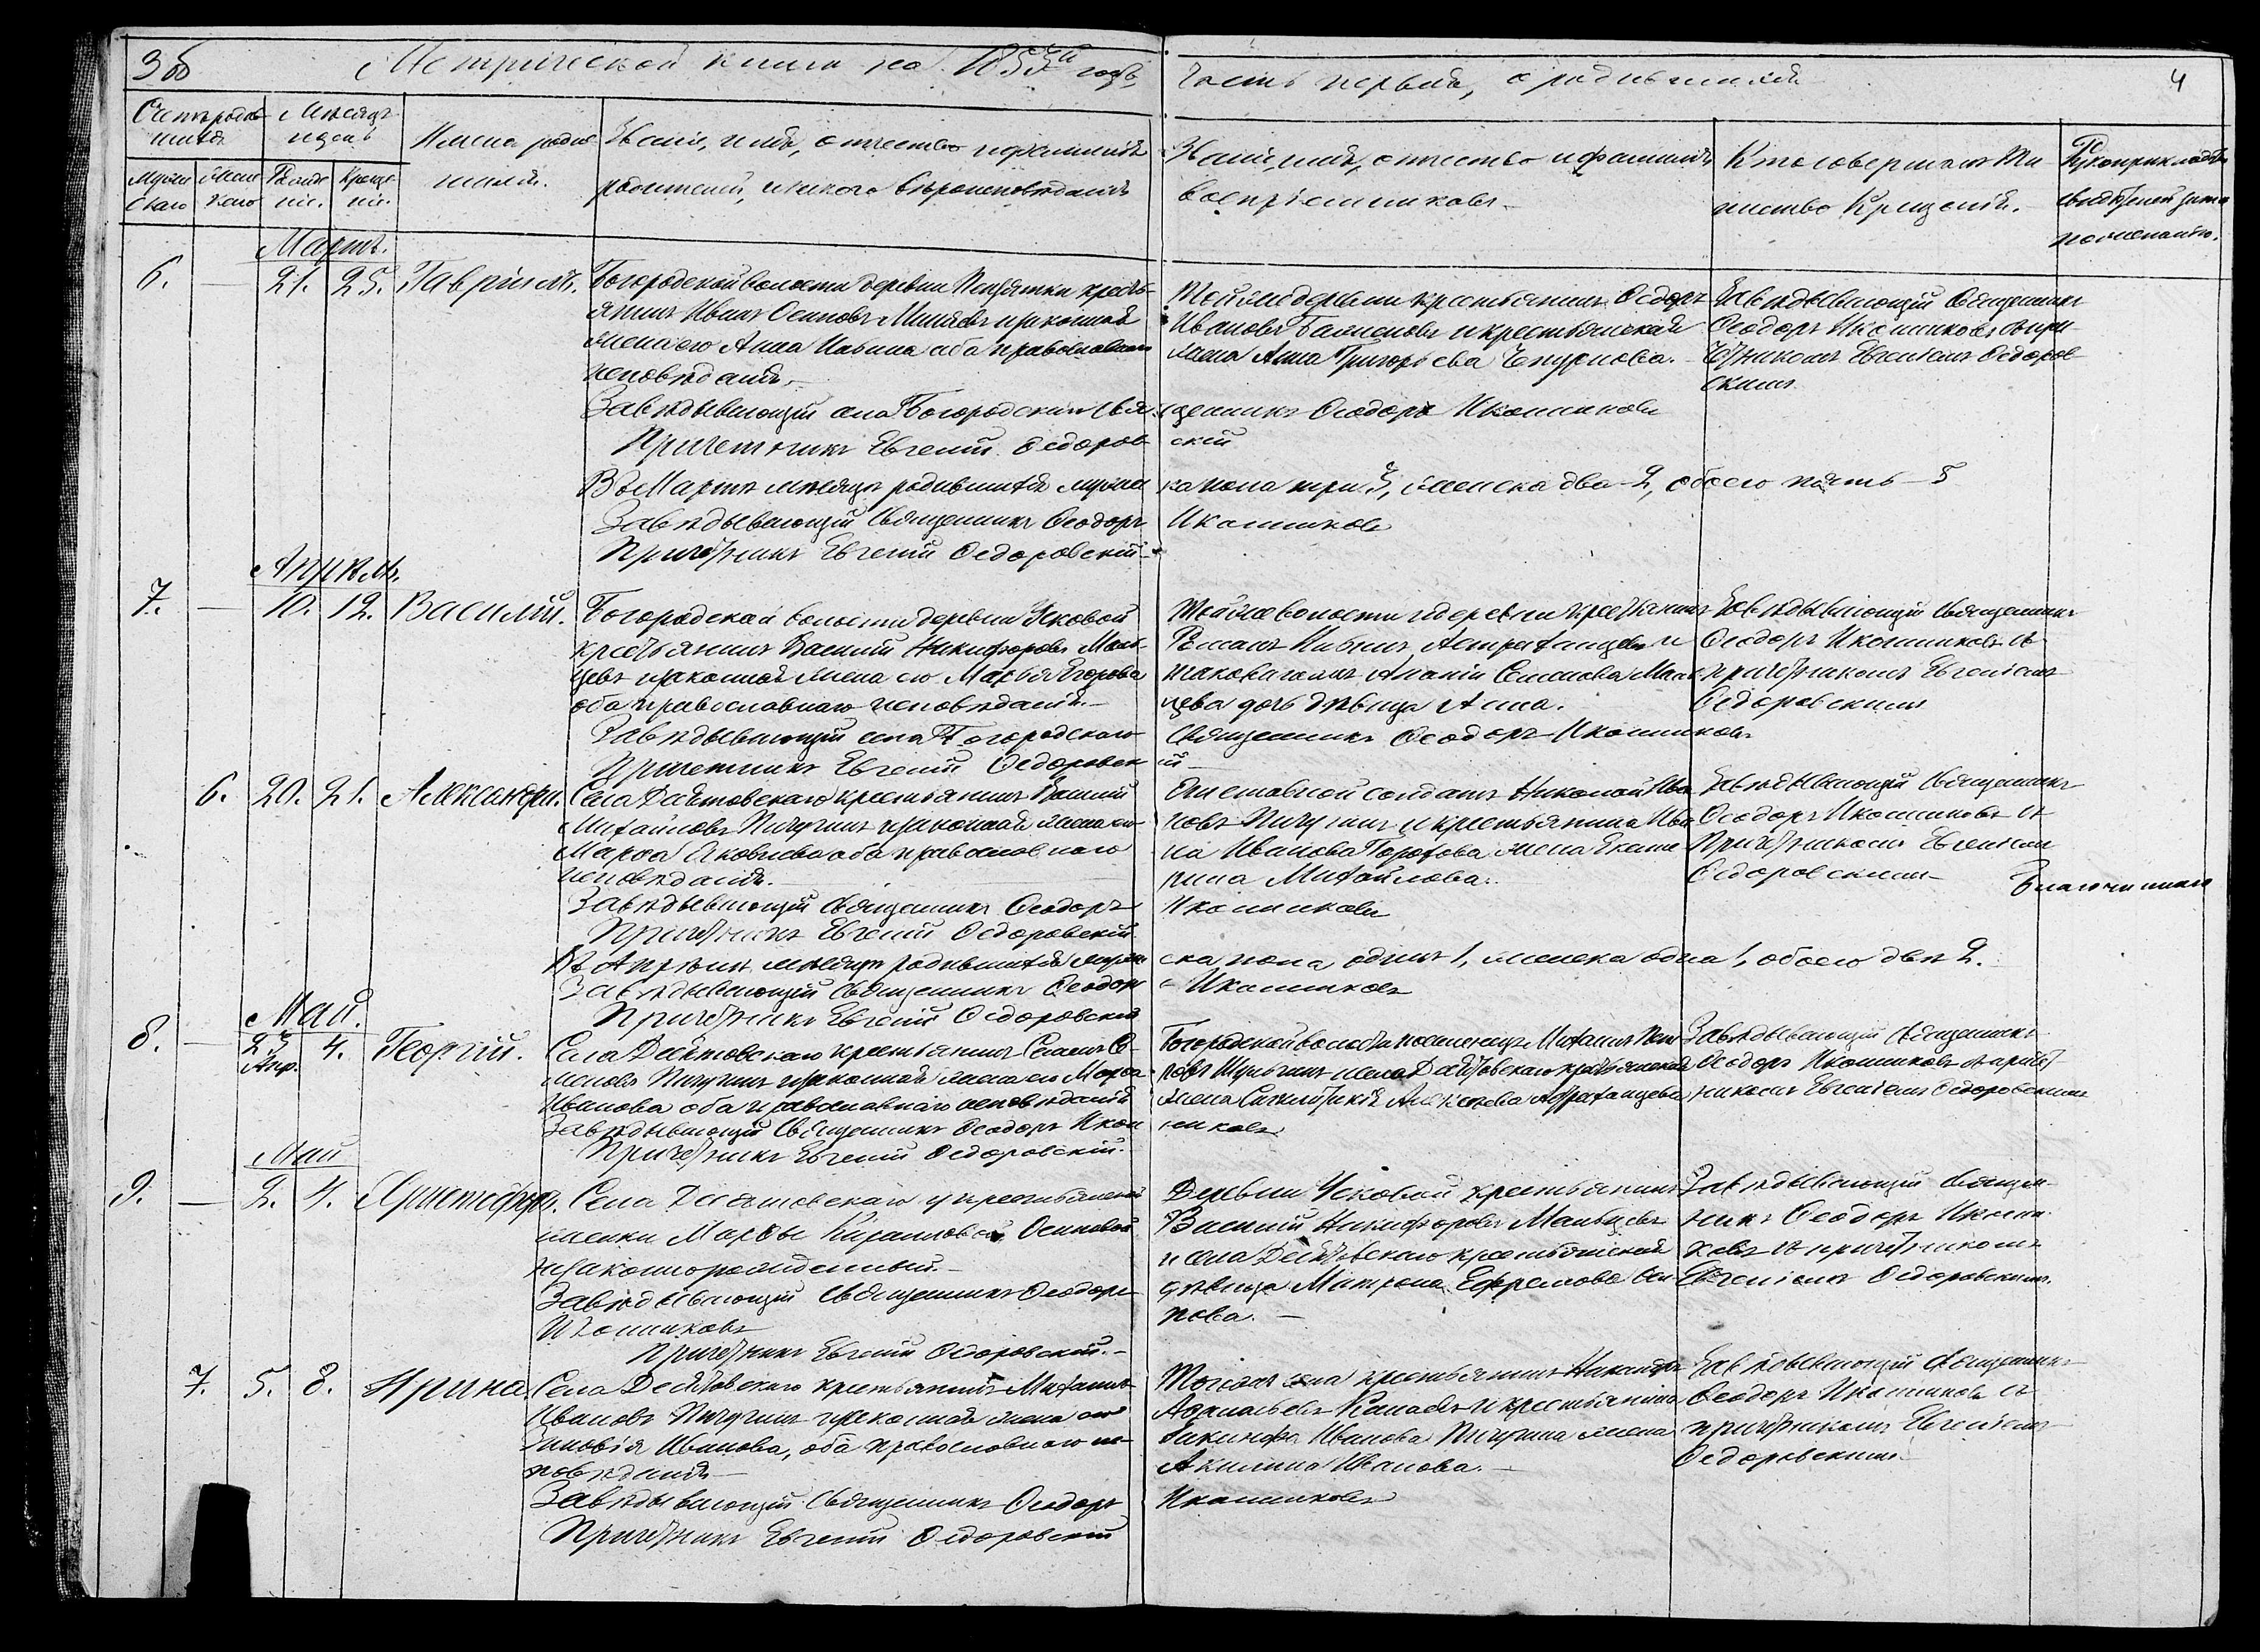 3об
Метрической книги на 1853й годъ,
Часть первая, о родившихся
4
Счетъ родив-
шихся
Мѣсяцъ
и день
Имена родив-
шихся.
Званіе, имя, отчество и фамилія
родителей, и какого вѣроисповѣданія
Званіе, имя, отчество и фамилія
воспріемниковъ.
Кто совершалъ Та-
инство Крещенія.
Рукоприкладство
свидѣтелей записи
по желанію.
Мужес-
каго
Женс-
каго
Рожде-
нія.
Креще-
нія.
Мартъ.
6. — 21. 25. Гавріилъ.
Богородской волости деревни крестья-
янинъ Иванъ Осиповъ Минаевъ и законная
жена его Анна Ильина оба православнаго
исповѣданія.
Тойже деревни крестьянинъ Ѳедоръ
Ивановъ и крестьянская
жена Анна Григорьева Чепурнова.
Завѣдывающій Священникъ
Ѳеодоръ Иконниковъ съ при-
четникомъ Евгеніемъ Ѳедоров-
скимъ
Завѣдывающій села Богородскаго Священникъ Ѳеодоръ Иконниковъ
Причетникъ Евгеній Ѳедоровскій
Въ Мартѣ мѣсяцѣ родившихся мужеска пола три 3, женска два 2, обоего пять 5
Завѣдывающій Священникъ Ѳеодоръ Иконниковъ
Причетникъ Евгеній Ѳедоровскій
Апрѣль.
7. — 10. 12. Василій.
Богородской волости деревни Усковой
крестьянинъ Василій Никифоровъ Маль-
цевъ и законная жена его Марья Егорова
оба православнаго исповѣданія.
Тойже волости и деревни крестьянинъ
Романъ Ильинъ Астраханцевъ и
таковагожъ Ананіи Семенова Маль-
цева дочь дѣвица Анна.
Завѣдывающій Священникъ
Ѳеодоръ Иконниковъ съ
причетникомъ Евгеніемъ
Ѳедоровскимъ
Завѣдывающій села Богородскаго Священникъ Ѳеодоръ Иконниковъ
Причетникъ Евгеній Ѳедоровскій
6. 20. 21. Александра.
Села Десятовскаго крестьянинъ Василій
Михайловъ Пичугинъ и законная жена его
Марѳа Яковлева оба православнаго
исповѣданія.
Отставной солдатъ Николай Ива-
новъ Пичугинъ и крестьянина Ива-
на Иванова Горохова жена Екате-
рина Михайлова.
Завѣдывающій Священникъ
Ѳеодоръ Иконниковъ съ
Причетникомъ Евгеніемъ
Ѳедоровскимъ
Завѣдывающій Священникъ Ѳеодоръ Иконниковъ
Причетникъ Евгеній Ѳедоровскій
Въ Апрѣлѣ мѣсяцѣ родившихся мужеска пола одинъ 1, женска одна 1, обоего два 2.
Завѣдывающій Священникъ Ѳеодоръ Иконниковъ
Причетникъ Евгеній Ѳедоровскій
Май.
8. — 23 Апр. 4. Георгій.
Села Десятовскаго крестьянинъ Семенъ Се-
меновъ Пичугинъ и законная жена его Марѳа
Иванова оба православнаго исповѣданія
Богородской волости поселенецъ Михаилъ Пет-
ровъ Шульгинъ и села Десятовскаго крестьянская
жена Алексѣева Астраханцева
Завѣдывающій Священникъ
Ѳеодоръ Иконниковъ съ причет-
никомъ Евгеніемъ Ѳедоровскимъ
Завѣдывающій Священникъ Ѳеодоръ Иконниковъ
Причетникъ Евгеній Ѳедоровскій.
Май
9. — 2. 4. Христофоръ.
Села Десятовскаго у крестьянской
женки Марѳы Осиповой
незаконнорожденный.
Деревни Усковой крестьянинъ
Василій Никифоровъ Мальцевъ
и села Десятовскаго крестьянская
дѣвица Матрона Ефремова Оси-
пова.
Завѣдывающій Священ-
никъ Ѳеодоръ Иконни-
ковъ съ причетникомъ
Евгеніемъ Ѳедоровскимъ.
Завѣдывающій Священникъ Ѳеодоръ
Иконниковъ
Причетникъ Евгеній Ѳедоровскій.
7. 5. 8. Ирина
Села Десятовскаго крестьянинъ Михаилъ
Ивановъ Пичугинъ и законная жена его
Зиновія Иванова, оба православнаго ис-
повѣданія
Тогоже села крестьянинъ Никандръ
Канаевъ и крестьянина
Иванова Пичугина жена
Акилина Иванова.
Завѣдывающій Священникъ
Ѳеодоръ Иконниковъ съ
причетникомъ Евгеніемъ
Ѳедоровскимъ
Завѣдывающій Священникъ Ѳеодоръ Иконниковъ
Причетникъ Евгеній Ѳедоровскій